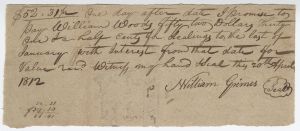 $52.31½ One day after date I promise to
Pay William Woods fifty two Dollars thirty
one & a half cents for dealings to the last of
January with Interest from that date for
Value recd Witness my hand & Seal this 20th April
1812
William Grimes Seal